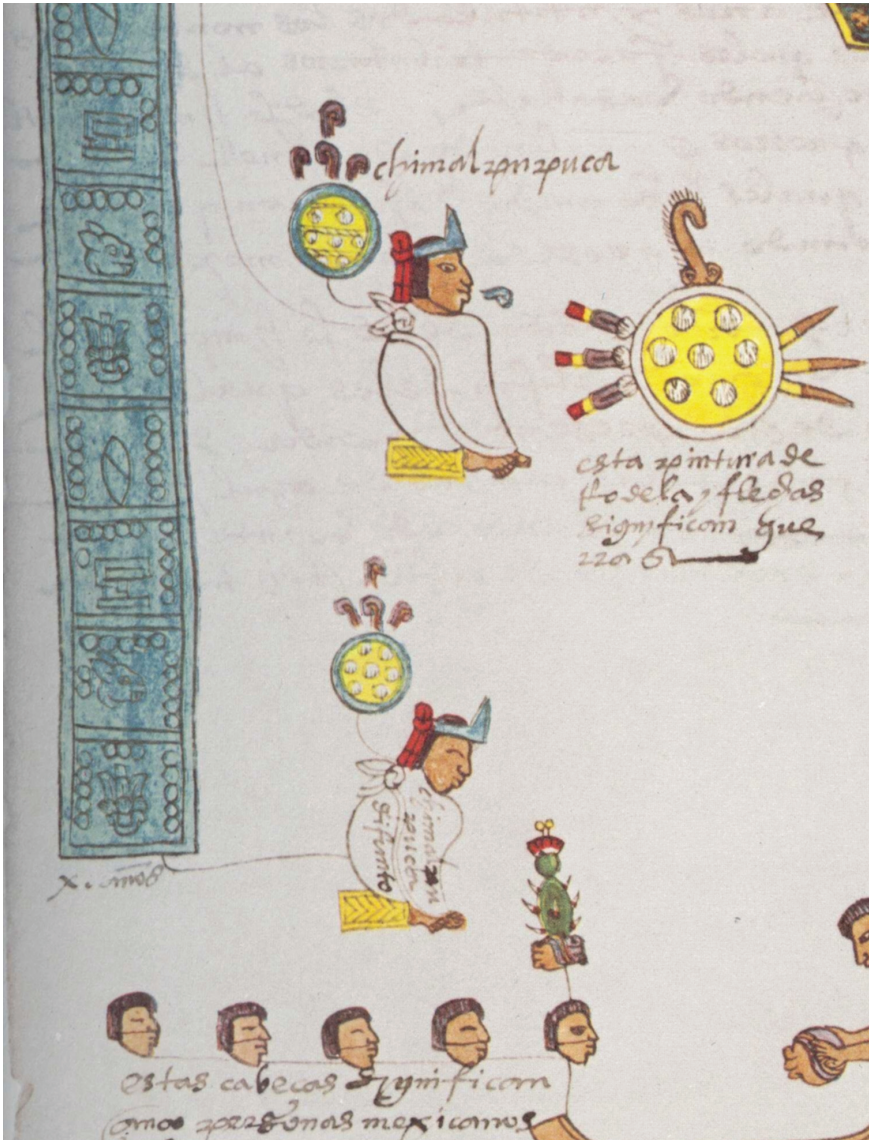 chimalpupuca
esta pintura de
rodela y flechas
significan gue
rra
chimalpu
puca
difunto
x. años
estas cabeças significan
personas mexicanos